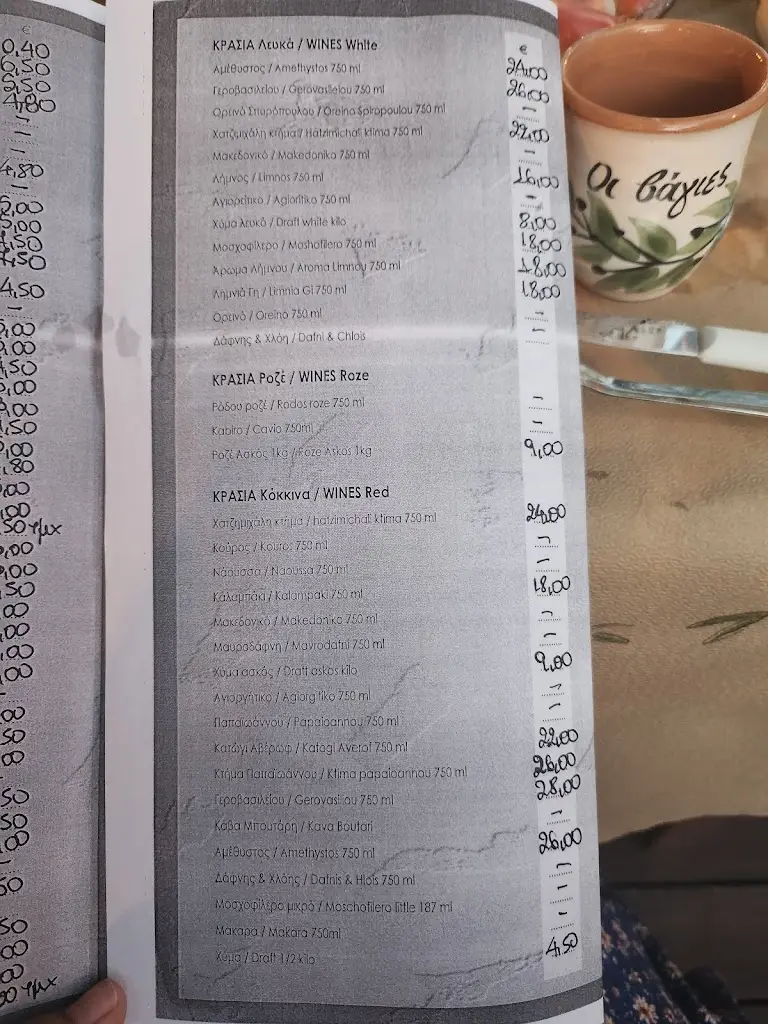 ΚΡΑΣΙΑ Λευκά / WINES White €
Αμέθυστος / Amethystos 750 ml 24,00
Γεροβασιλείου / Gerovasileiou 750 ml 26,00
Ορεινό Σπυρόπουλου / Oreino Spiropoulou 750 ml –
Χατζιμιχάλη κτήμα / Hatzimichali ktima 750 ml 22,00
Μακεδονικό / Makedonika 750 ml –
Λήμνος / Limnos 750 ml 16,00
Αγιορίτικο / Agioritiko 750 ml –
Χύμα λευκό / Draft white kilo 8,00
Μοσχοφίλερο / Moshofilero 750 ml 18,00
Άρωμα Λήμνου / Aroma Limnou 750 ml 18,00
Λημνιά Γη / Limnia Gi 750 ml 18,00
Ορεινό / Oreino 750 ml –
Δάφνης & Χλόη / Dafni & Chlois –
ΚΡΑΣΙΑ Ροζέ / WINES Roze
Ρόδου ροζέ / Rodos roze 750 ml –
Kabiro / Cavio 750ml –
Ροζέ Ασκός 1kg / Roze Askos 1kg 9,00
ΚΡΑΣΙΑ Κόκκινα / WINES Red
Χατζημιχάλη κτήμα / hatzimichali ktima 750 ml 24,00
Κούρος / Kouros 750 ml –
Νάουσσα / Naoussa 750 ml –
Καλαμπάκι / Kalampaki 750 ml 18,00
Μακεδονικό / Makedoniko 750 ml –
Μαυροδάφνη / Mavrodafni 750 ml –
Χύμα ασκός / Draft askos kilo 9,00
Αγιοργητικο / Agiorgitiko 750 ml –
Παπαϊωάννου / Papaioannou 750 ml –
Κατώγι Αβέρωφ / Katogi Averof 750 ml 22,00
Κτήμα Παπαϊωάννου / Ktima papaioannou 750 ml 26,00
Γεροβασιλείου / Gerovasiliou 750 ml 28,00
Κάβα Μπουτάρη / Kava Boutari –
Αμέθυστος / Amethystos 750 ml 26,00
Δάφνης & Χλόης / Dafnis & Hlois 750 ml –
Μοσχοφίλερο μικρό / Moschofilero little 187 ml –
Μακαρα / Makara 750ml –
Χύμα / Draft 1/2 kilo 4,50
Οι βάγιες